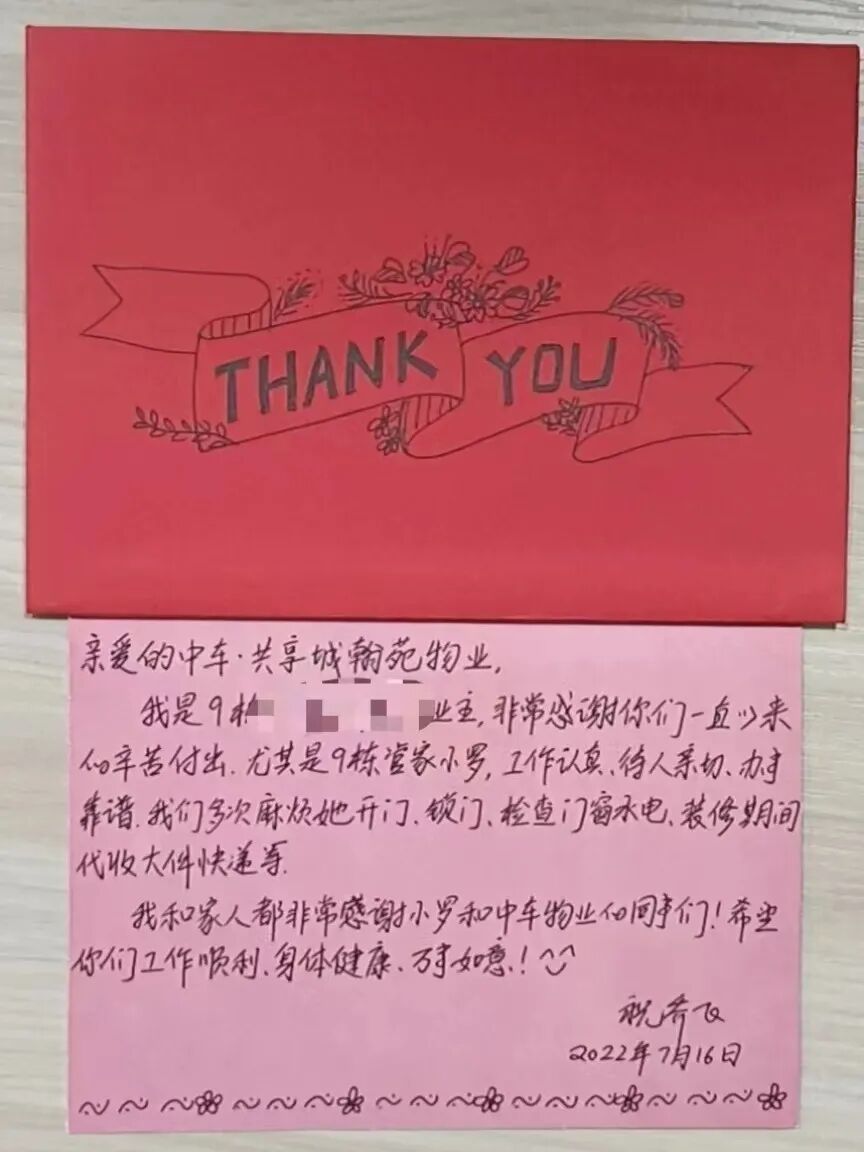 THANK YOU
亲爱的中车·共享城翰苑物业,
我是9栋 业主,非常感谢你们一直以来
的辛苦付出.尤其是9栋管家小罗,工作认真、待人亲切、办事
靠谱.我们多次麻烦她开门、锁门、检查门窗水电、装修期间
代收大件快递等.
我和家人都非常感谢小罗和中车物业的同事们!希望
你们工作顺利、身体健康、万事如意!
2022年7月16日